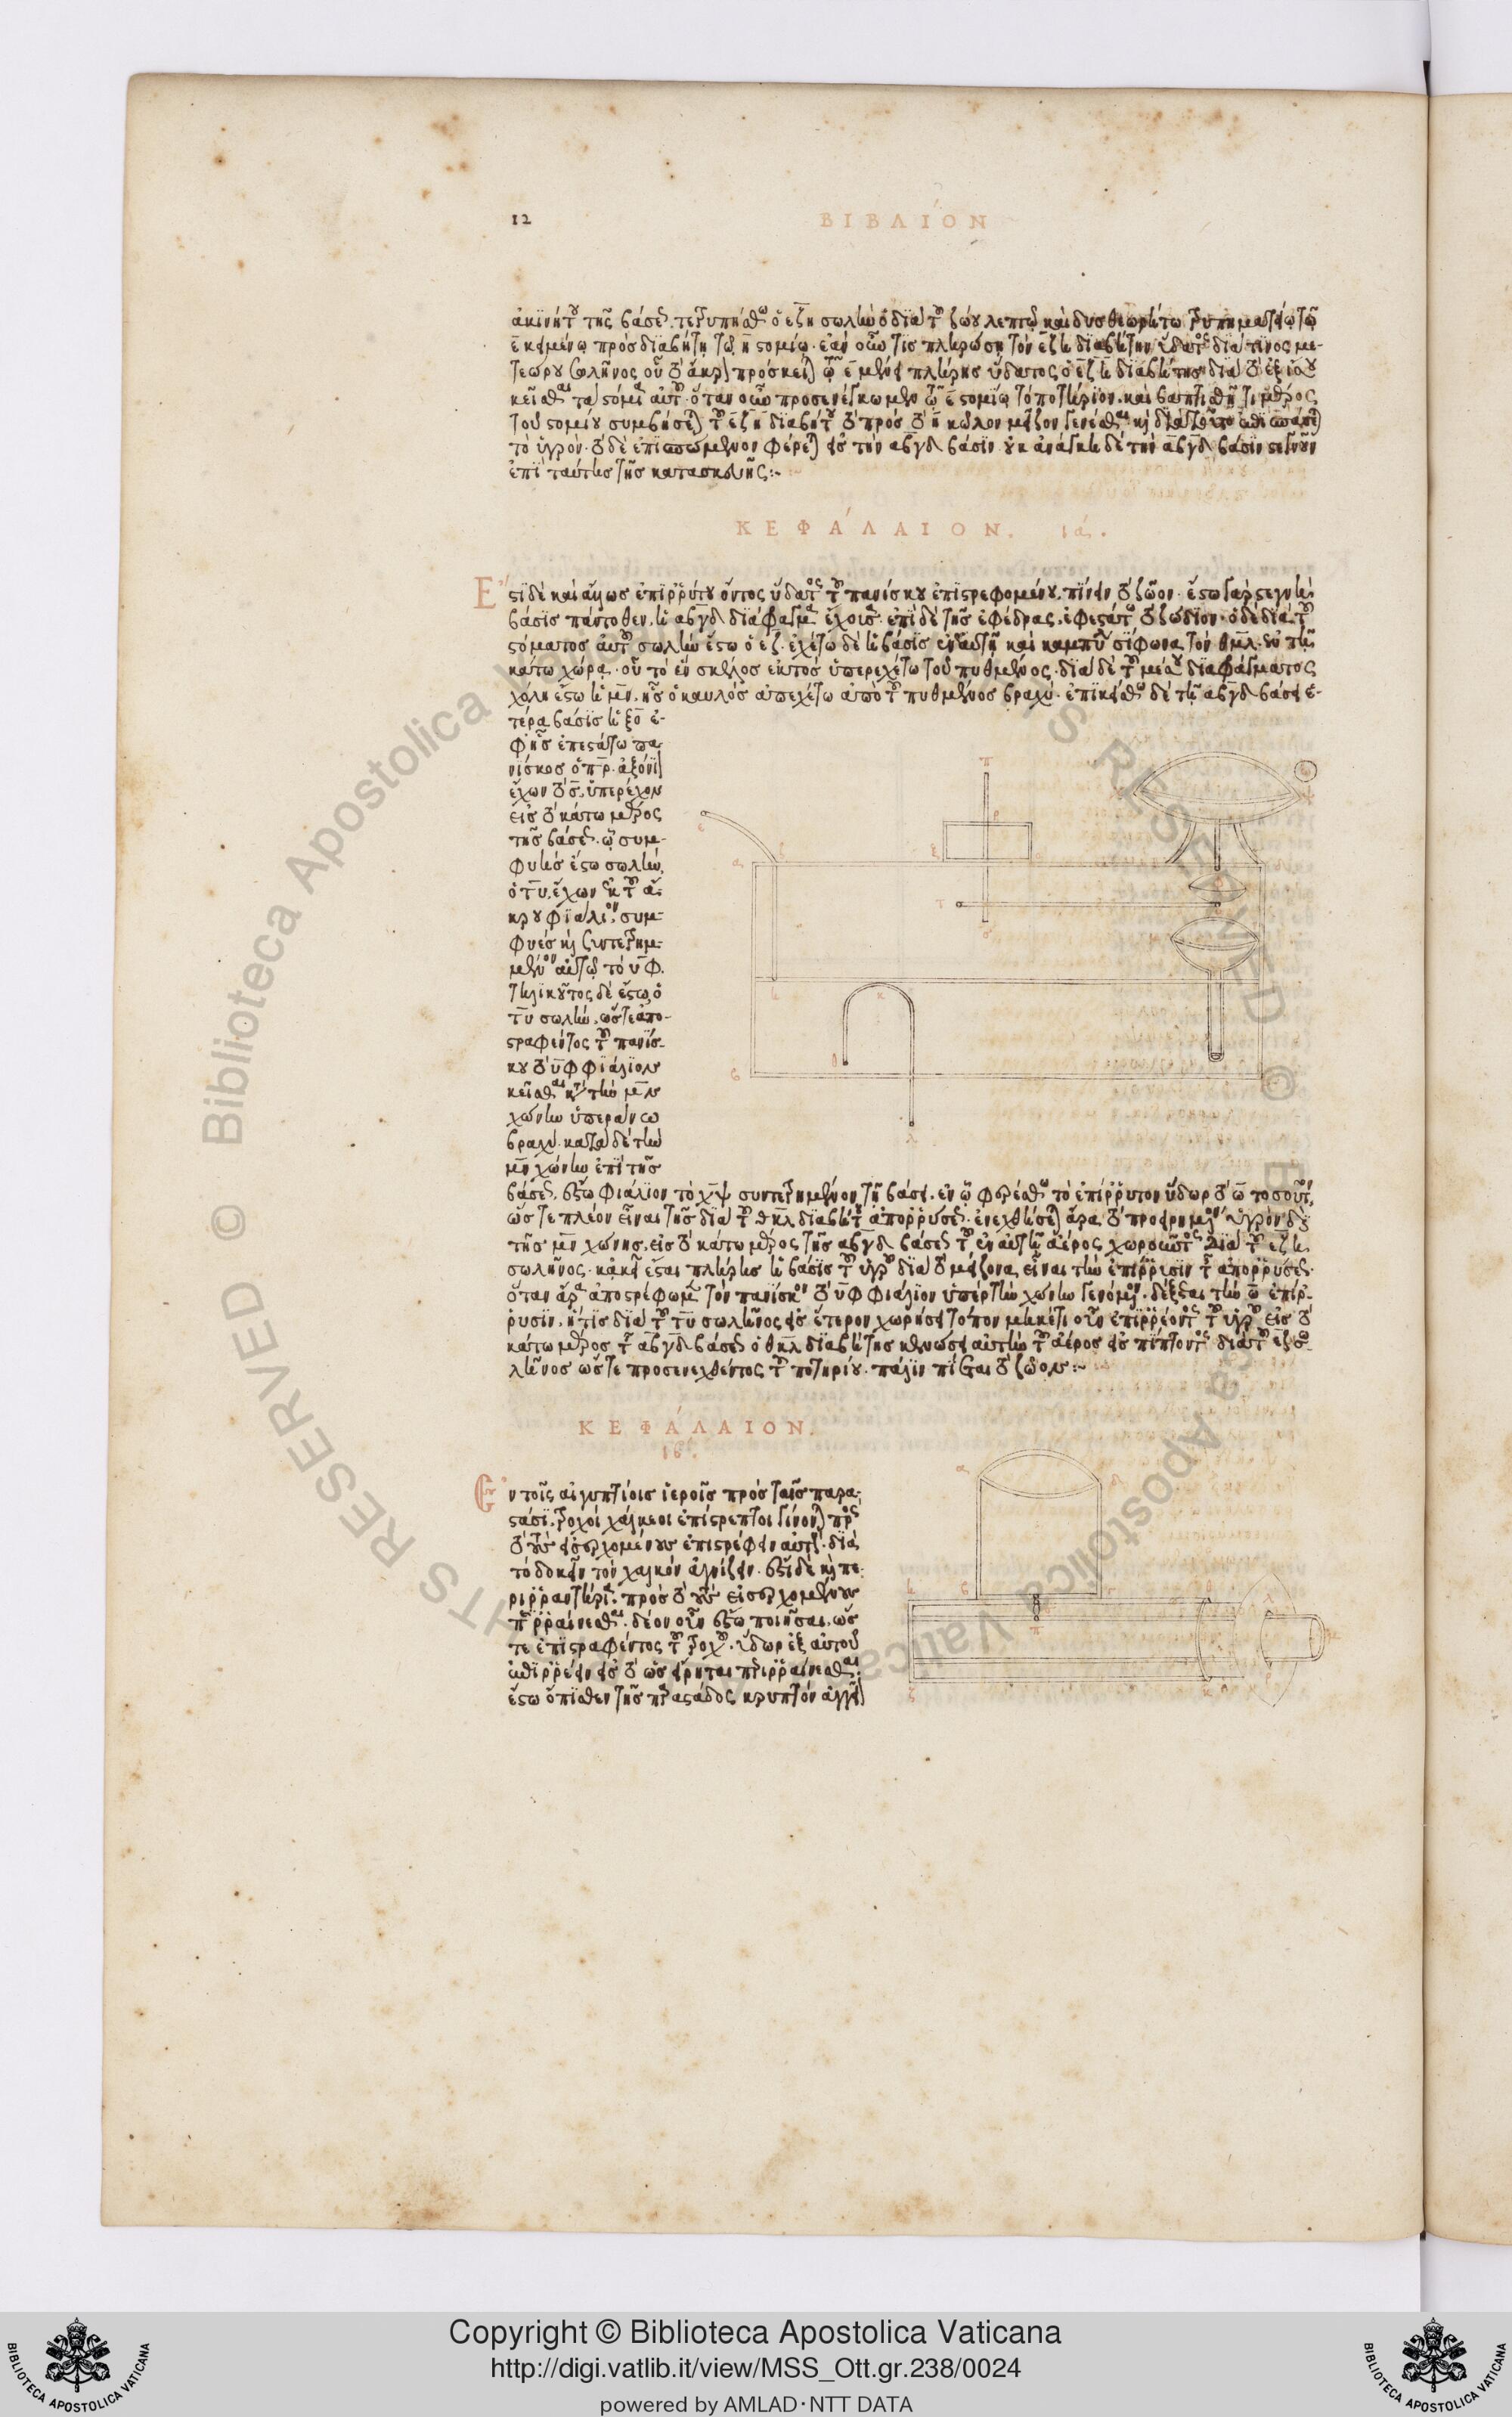 12
ΒΙΒΛΙΌΝ
ἀκινήτου τῆς βάσεως. τετρυπήσθω ὁ εζη σωλὴν ὁ διὰ τοῦ ζώου λεπτῷ καὶ δυσθεωρήτω τρυπηματίῳ τῷ
ε κειμένῳ πρὸς διαβήτῃ τῷ η στομίῳ. ἐὰν οὖν τις πληρώσῃ τὸν εζη διαβήτην ὕδατος διά τινος με-
τεώρου σωλῆνος οὗ τὸ ἄκρον πρόσκειται
κεῖσθαι τὰ στόματα αὐτοῦ. ὅταν οὖν προσενέγκωμεν τῷ ε στομίῳ τὸ ποτήριον. καὶ βαπτισθῇ τι μέρος
τοῦ στομίου συμβήσεται τοῦ εζη διαβήτου τὸ πρὸς τὸ η κῶλον μεῖζον γενέσθαι
τὸ ὑγρόν. τὸ δὲ ἐπισπώμενον φέρεται εἰς τὴν αβγδ βάσιν. οὐκ ἀνάγκη δὲ τὴν αβγδ βάσιν στεγνοῦν
ἐπὶ ταύτης τῆς κατασκευῆς:~
ΚΕΦΆΛΑΙΟΝ. ιά.
Ἔστι δὲ καὶ ἄλλως ἐπιρρύτου ὄντος ὕδατος τοῦ πανίσκου ἐπιστρεφομένου, πίνειν τὸ ζῶον. ἔστω γὰρ στεγνὴ
βάσις πάντοθεν. ἡ αβγδ διάφραγμα ἔχουσα. ἐπὶ δὲ τῆς ἐφέδρας, ἐφεστάτω τὸ ζώδιον. ὁ δὲ διὰ τοῦ
στόματος αὐτοῦ σωλὴν ἔστω ὁ εζ. ἐχέτω δὲ ἡ βάσις ἐν αὑτῇ καὶ καμπύλον σίφωνα τὸν θκλ. ἐν τῇ
κάτω χώρᾳ. οὗ τὸ ἓν σκέλος ἐκτὸς ὑπερεχέτω τοῦ πυθμένος. διὰ δὲ τοῦ μέσου διαφράγματος
χώνη ἔστω ἡ μν. ἧς ὁ καυλὸς ἀπεχέτω ἀπὸ τοῦ πυθμένος βραχύ. ἐπικείσθω δὲ τῇ αβγδ βάσει ἑ-
τέρα βάσις ἡ ξο ἐ-
φ' ἧς ἐπεστάτω πα
νίσκος ὁ πρ. ἄξονα
ἔχων τὸ σ. ὑπερέχον
εἰς τὸ κάτω μέρος
τῆς βάσεως. ᾧ συμ-
φυὴς ἔστω σωλὴν,
ὁ τυ, ἔχων ἐκ τοῦ ἄ-
κρου φιάλιον, συμ-
φυές καὶ συντετρημ-
μένον αὐτῷ τὸ υφ.
τηλικοῦτος δὲ ἔστω, ὁ
τυ σωλὴν, ὥστε ἀπο-
στραφέντος τοῦ πανίσ-
κου τὸ υφ φιάλιον
κεῖσθαι κατὰ τὴν μν
χώνην ὑπεράνω
βραχύ. κατὰ δὲ τὴν
μν χώνην ἐπὶ τῆς
βάσεως, ἔστω φιάλιον τὸ χψ συντετρημένον τῇ βάσει. ἐν ᾧ φερέσθω τὸ ἐπίρρυτον ὕδωρ τὸ ω τοσοῦτον,
ὥστε πλέον εἶναι τῆς διὰ τοῦ θκλ διαβήτου ἀπορρύσεως. ἐνεχθήσεται ἄρα τὸ προειρημένον ὑγρὸν διὰ
τῆς μν χώνης, εἰς τὸ κάτω μέρος τῆς αβγδ βάσεως τοῦ ἐν αὐτῇ ἀέρος χωροῦντος διὰ τοῦ εζη
σωλῆνος. κἀκεῖ ἔσται πλήρης ἡ βάσις τοῦ ὑγροῦ διὰ τὸ μείζονα εἶναι τὴν ἐπίρρυσιν τῆς ἀπορρύσεως.
ὅταν ἄρα ἀποστρέφωμεν τὸν πανίσκον τὸ υφ φιάλιον ὑπὲρ τὴν χώνην γενόμενον. δέξεται τὴν ω ἐπίρ-
ρυσιν, ἥτις διὰ τοῦ τυ σωλῆνος εἰς ἕτερον χωρήσει τόπον μηκέτι οὖν ἐπιρρέοντος τοῦ ὑγροῦ εἰς τὸ
κάτω μέρος τῆς αβγδ βάσεως ὁ θκλ διαβήτης κενώσει αὐτὴν τοῦ ἀέρος εἰσπίπτοντος διὰ τοῦ εζ σω-
λῆνος ὥστε προσενεχθέντος τοῦ ποτηρίου. πάλιν πίεται τὸ ζῶον:~
ΚΕΦΆΛΑΙΟΝ.
ιβ.
Ἐν τοῖς αἰγυπτίοις ἱεροῖς πρὸς ταῖς παρα-
στάσι. τροχοὶ χάλκεοι ἐπίστρεπτοι γίνονται πρὸς
τὸ τοὺς εἰσερχομένους ἐπιστρέφειν αὐτούς. διὰ
τὸ δοκεῖν τὸν χαλκὸν ἁγνίζειν. ἔστι δὲ καὶ πε-
ριρραντήρια. πρὸς τὸ τοὺς εἰσερχομένους
περιρραίνεσθαι. δέον οὖν ἔστω ποιῆσαι, ὥσ
τε ἐπιστραφέντος τοῦ τροχοῦ. ὕδωρ ἐξ αὐτοῦ
ἐπιρρεῖν εἰς τὸ ὡς εἴρηται περιρραίνεσθαι.
ἔστω ὄπισθεν τῆς παραστάδος κρυπτὸν ἀγγεῖον
Copyright © Biblioteca Apostolica Vaticana
http://digi.vatlib.it/view/MSS_Ott.gr.238/0024
powered by AMLAD·NTT DATA
BIBLIOTECA APOSTOLICA VATICANA
BIBLIOTECA APOSTOLICA VATICANA